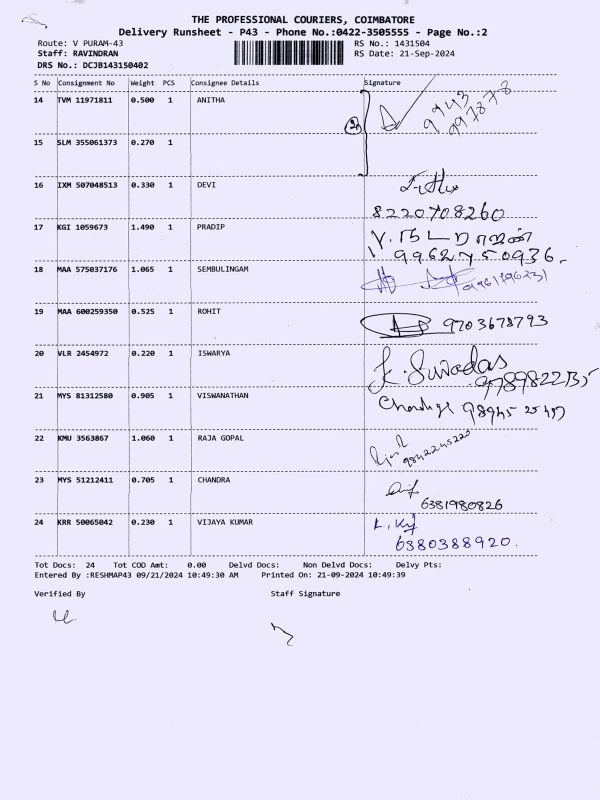 THE PROFESSIONAL COURIERS, COIMBATORE
Delivery Runsheet - P43 - Phone No.:0422-3505555 - Page No.:2
Route: V PURAM-43 RS No.: 1431504
Staff: RAVINDRAN RS Date: 21-Sep-2024
DRS No.: DCJB143150402
S No Consignment No Weight PCS Consignee Details Signature
14 TVM 11971811 0.500 1 ANITHA 9943 997878
15 SLM 355061373 0.270 1
16 IXM 507048513 0.330 1 DEVI
8220708260
17 KGI 1059673 1.490 1 PRADIP V. நடராஜன்
9962750936
18 MAA 575037176 1.065 1 SEMBULINGAM
19 MAA 600259350 0.525 1 ROHIT 9703678793
20 VLR 2454972 0.220 1 ISWARYA
21 MYS 81312580 0.905 1 VISWANATHAN
22 KMU 3563867 1.060 1 RAJA GOPAL 9842245220
23 MYS 51212411 0.705 1 CHANDRA
6381980826
24 KRR 50065042 0.230 1 VIJAYA KUMAR
6380388920.
Tot Docs: 24 Tot COD Amt: 0.00 Delvd Docs: Non Delvd Docs: Delvy Pts:
Entered By :RESHMAP43 09/21/2024 10:49:30 AM Printed On: 21-09-2024 10:49:39
Verified By Staff Signature